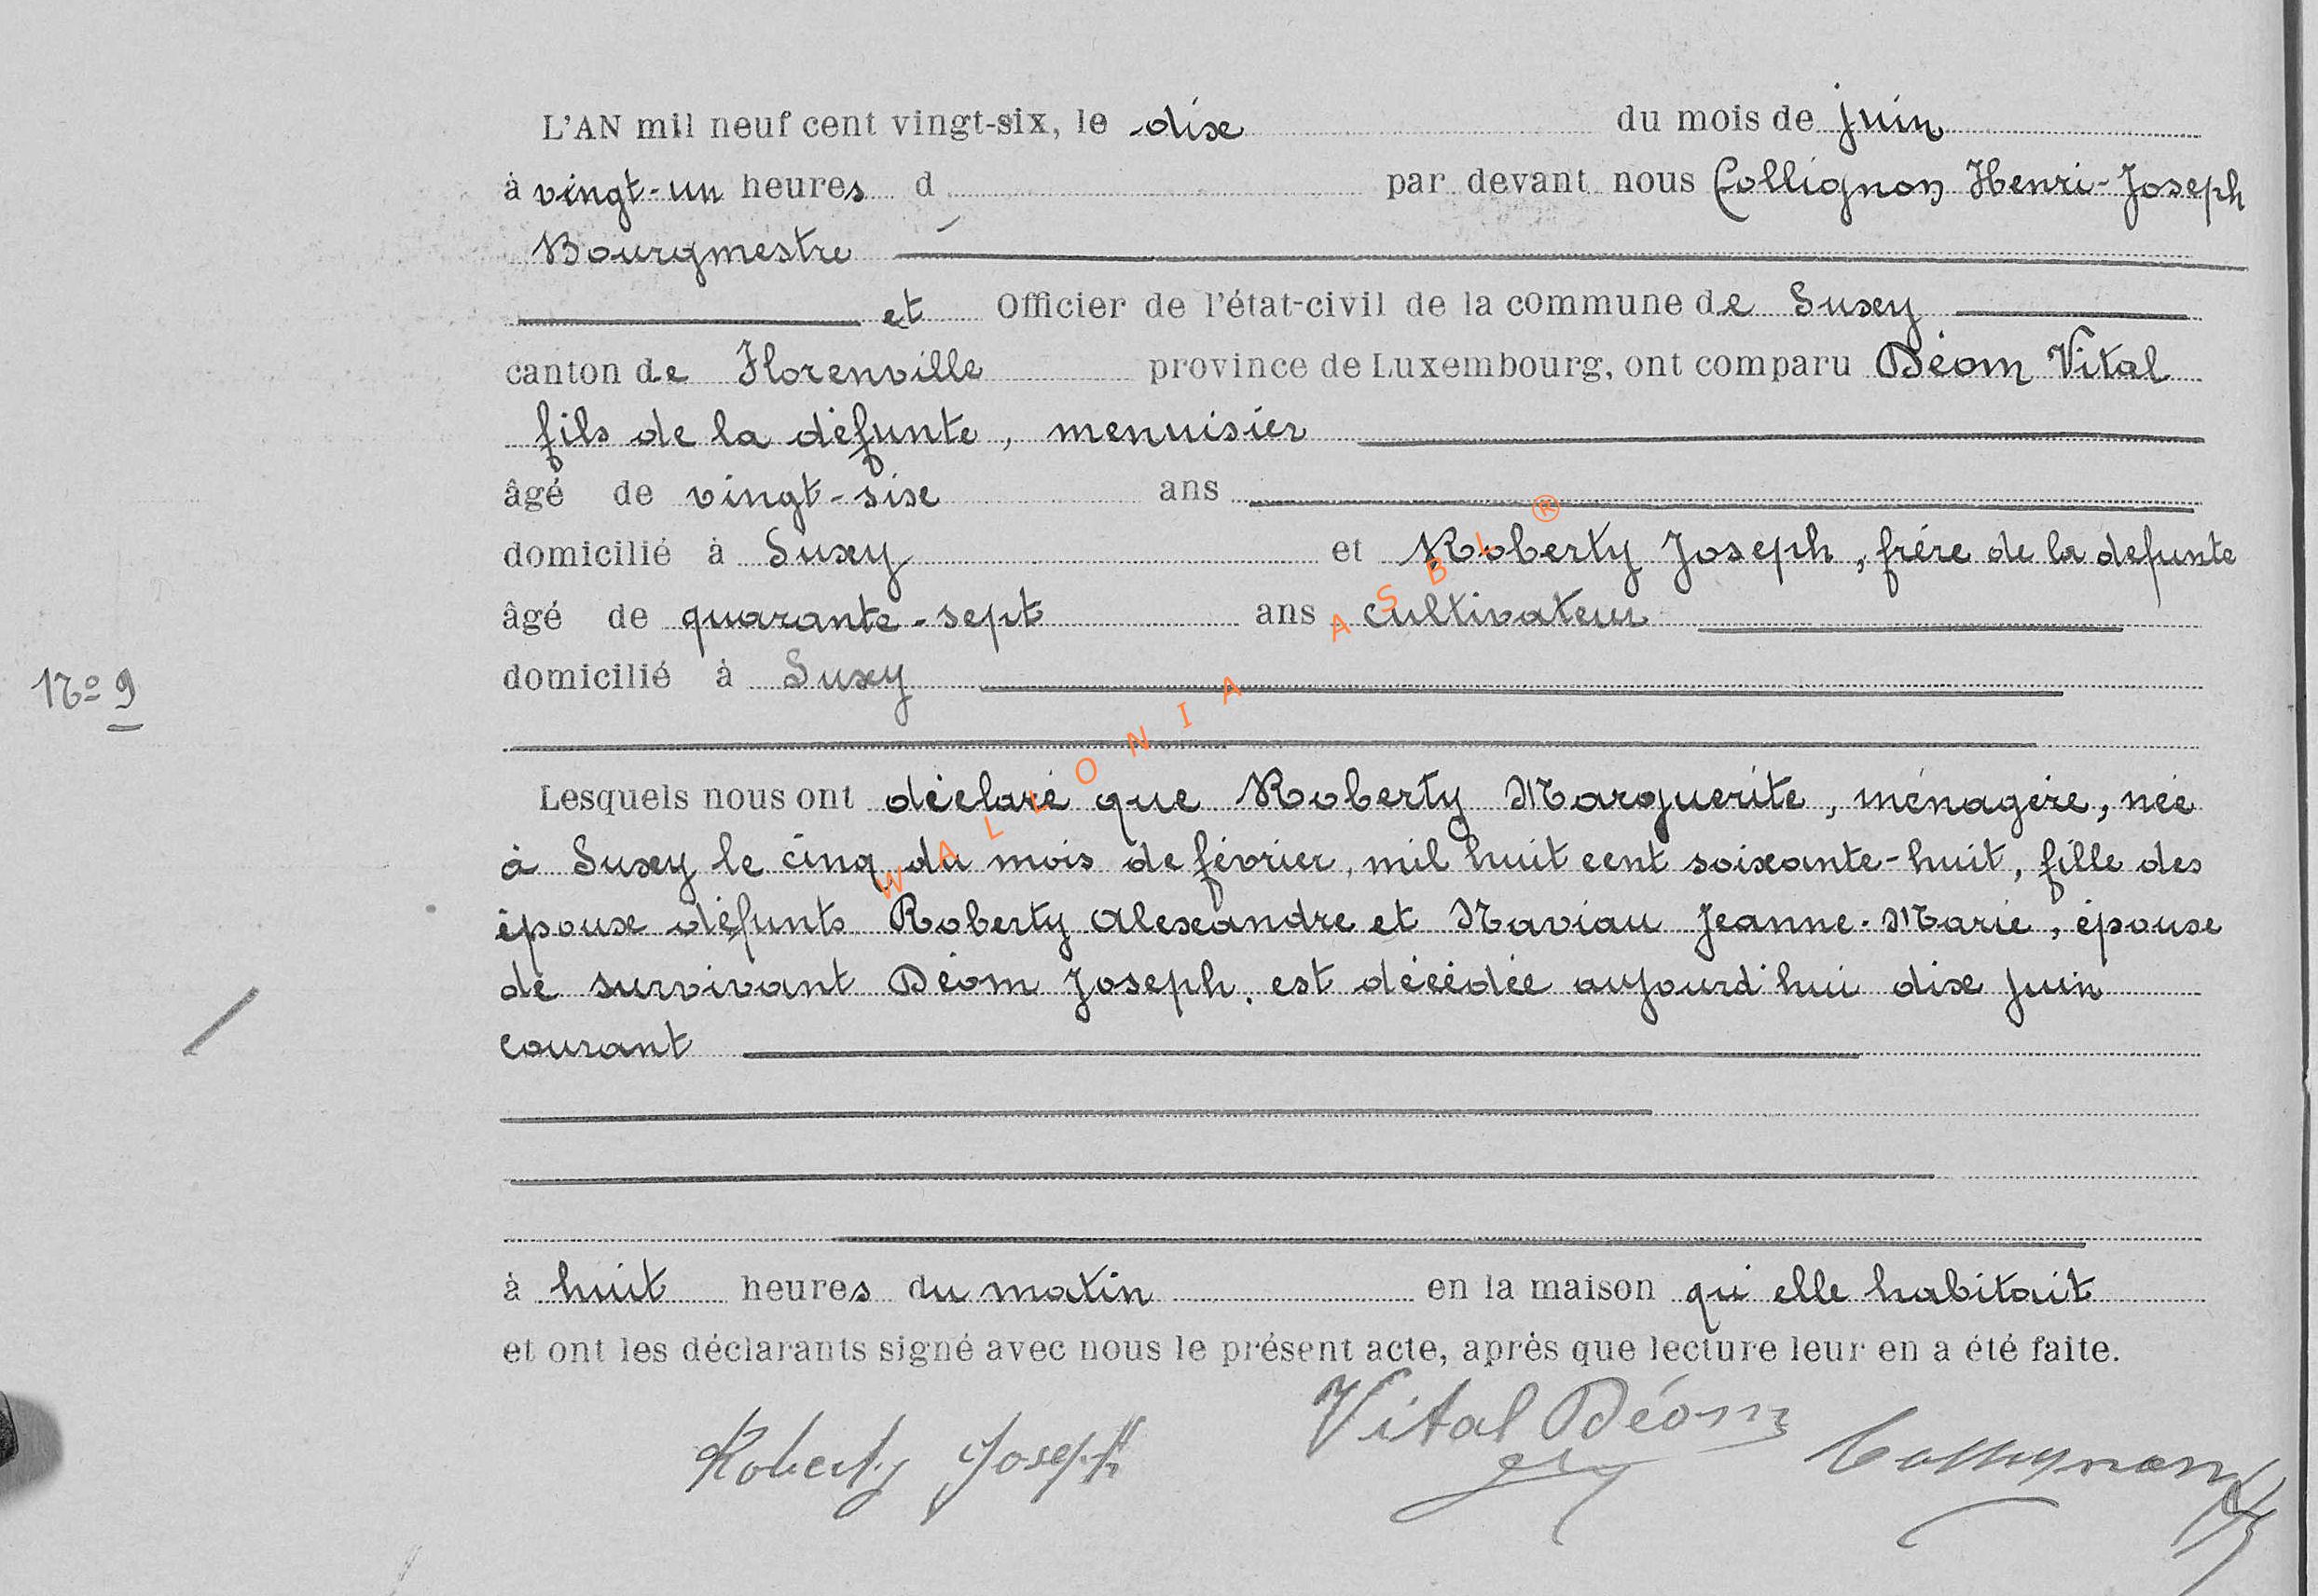 L'AN mil neuf cent vingt-six, le dix du mois de juin
à vingt-un heures d par devant nous Collignon Henri-Joseph
Bourgmestre
et Officier de l'état-civil de la commune de Suxy
canton de Florenville province de Luxembourg, ont comparu Déom Vital
fils de la défunte, menuisier
âgé de vingt-six ans
domicilié à Suxy et Roberty Joseph, frère de la defunte
âgé de quarante-sept ans cultivateur
N° 9
domicilié à Suxy
Lesquels nous ont déclaré que Roberty Marguerite, ménagère, née
à Suxy le cinq du mois de février, mil huit cent soixante-huit, fille des
époux défunts Roberty Alexandre et Naviau Jeanne-Marie, épouse
de survivant Déom Joseph, est décédée aujourd'hui dix juin
courant
à huit heures du matin en la maison qu'elle habitait
et ont les déclarants signé avec nous le présent acte, après que lecture leur en a été faite.
Roberty Joseph Vital Déom Collignon
WALLONIA ASBL ®